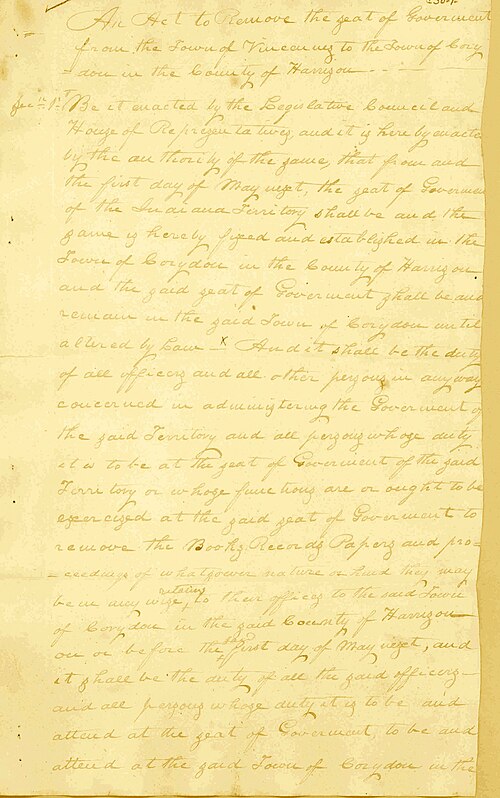 An Act to Remove the seat of Goverment
from the Town of Vincennes to the Town of Cory
-don in the County of Harrison
Sec. 1st Be it enacted by the Legislative Council and
House of Representatives, and it is hereby enacted
by the authority of the same, that from and
the first day of May next, the seat of Goverment
of the Indiana Territory shall be and the
same is hereby fixed and established in the
Town of Corydon in the County of Harrison
and the said seat of Goverment shall be and
remain in the said Town of Corydon until
altered by Law x And it shall be the duty
of all officers and all other persons in any way
concerned in administering the Goverment of
the said Territory and all persons whose duty
it is to be at the seat of Goverment of the said
Territory or whose functions are or ought to be
exercised at the said seat of Goverment to
remove the Books, Records, Papers and pro=
=ceedings of whatsoever nature or kind they may
be in any wise, relating to their offices to the said Town
of Corydon in the said County of Harrison
on or before the said first day of May next, and
it shall be the duty of all the said officers
and all persons whose duty it is to be and
attend at the seat of Goverment, to be and
attend at the said Town of Corydon in the